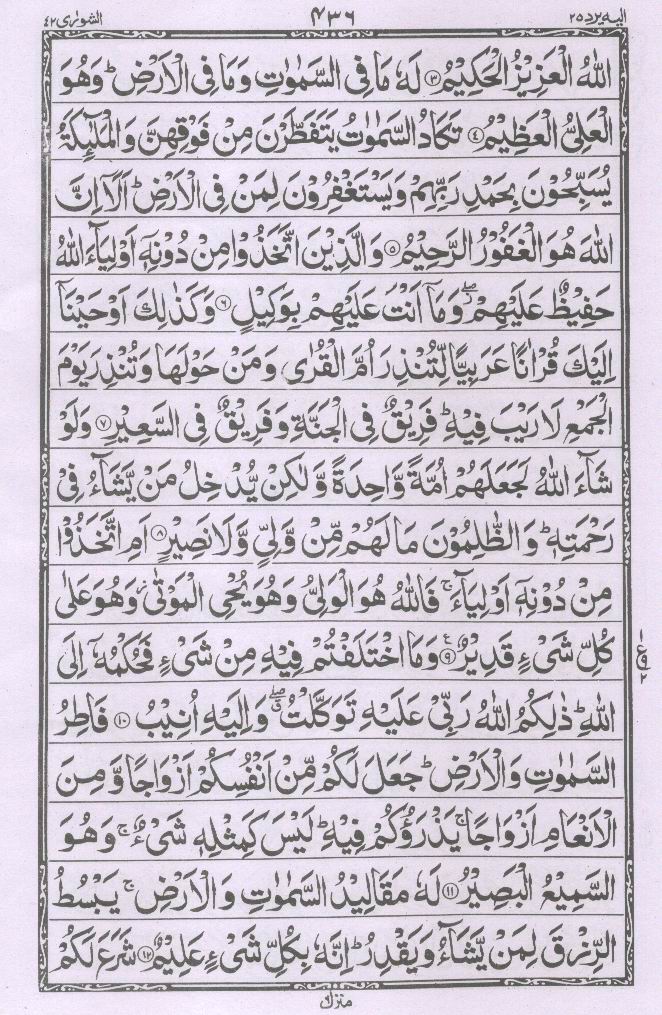 الیه یرد ۲۵
۴۳۶
الشورٰی ۴۲
اللّٰهُ الْعَزِیْزُ الْحَكِیْمُ ﴿۳﴾ لَهٗ مَا فِی السَّمٰوٰتِ وَمَا فِی الْاَرْضِ ؕ وَهُوَ
الْعَلِیُّ الْعَظِیْمُ ﴿۴﴾ تَكَادُ السَّمٰوٰتُ یَتَفَطَّرْنَ مِنْ فَوْقِهِنَّ وَالْمَلٰٓىِٕكَةُ
یُسَبِّحُوْنَ بِحَمْدِ رَبِّهِمْ وَیَسْتَغْفِرُوْنَ لِمَنْ فِی الْاَرْضِ ؕ اَلَاۤ اِنَّ
اللّٰهَ هُوَ الْغَفُوْرُ الرَّحِیْمُ ﴿۵﴾ وَالَّذِیْنَ اتَّخَذُوْا مِنْ دُوْنِهٖۤ اَوْلِیَآءَ اللّٰهُ
حَفِیْظٌ عَلَیْهِمْ ۖ وَمَاۤ اَنْتَ عَلَیْهِمْ بِوَكِیْلٍ ﴿۶﴾ وَكَذٰلِكَ اَوْحَیْنَاۤ
اِلَیْكَ قُرْاٰنًا عَرَبِیًّا لِّتُنْذِرَ اُمَّ الْقُرٰی وَمَنْ حَوْلَهَا وَتُنْذِرَ یَوْمَ
الْجَمْعِ لَا رَیْبَ فِیْهِ ؕ فَرِیْقٌ فِی الْجَنَّةِ وَفَرِیْقٌ فِی السَّعِیْرِ ﴿۷﴾ وَلَوْ
شَآءَ اللّٰهُ لَجَعَلَهُمْ اُمَّةً وَّاحِدَةً وَّلٰكِنْ یُّدْخِلُ مَنْ یَّشَآءُ فِیْ
رَحْمَتِهٖ ؕ وَالظّٰلِمُوْنَ مَا لَهُمْ مِّنْ وَّلِیٍّ وَّلَا نَصِیْرٍ ﴿۸﴾ اَمِ اتَّخَذُوْا
مِنْ دُوْنِهٖۤ اَوْلِیَآءَ ۚ فَاللّٰهُ هُوَ الْوَلِیُّ وَهُوَ یُحْیِ الْمَوْتٰی ؗ وَهُوَ عَلٰی
كُلِّ شَیْءٍ قَدِیْرٌ ﴿۹﴾ ع وَمَا اخْتَلَفْتُمْ فِیْهِ مِنْ شَیْءٍ فَحُكْمُهٗۤ اِلَی
اللّٰهِ ؕ ذٰلِكُمُ اللّٰهُ رَبِّیْ عَلَیْهِ تَوَكَّلْتُ ۖ ق وَاِلَیْهِ اُنِیْبُ ﴿۱۰﴾ فَاطِرُ
السَّمٰوٰتِ وَالْاَرْضِ ؕ جَعَلَ لَكُمْ مِّنْ اَنْفُسِكُمْ اَزْوَاجًا وَّمِنَ
الْاَنْعَامِ اَزْوَاجًا ۚ یَذْرَؤُكُمْ فِیْهِ ؕ لَیْسَ كَمِثْلِهٖ شَیْءٌ ۚ وَهُوَ
السَّمِیْعُ الْبَصِیْرُ ﴿۱۱﴾ لَهٗ مَقَالِیْدُ السَّمٰوٰتِ وَالْاَرْضِ ۚ یَبْسُطُ
الرِّزْقَ لِمَنْ یَّشَآءُ وَیَقْدِرُ ؕ اِنَّهٗ بِكُلِّ شَیْءٍ عَلِیْمٌ ﴿۱۲﴾ شَرَعَ لَكُمْ
۱
ع ۹
۲